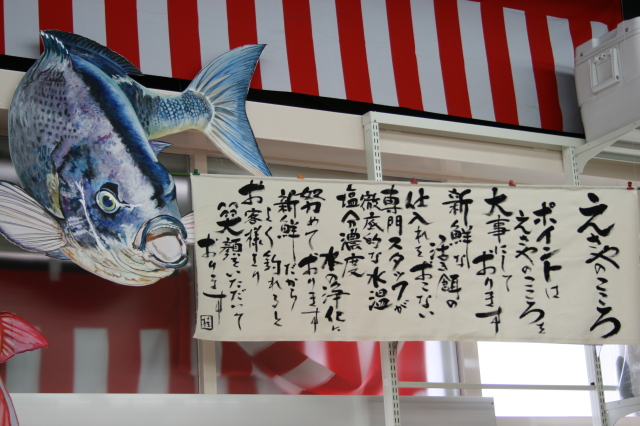 えさやのこころ
ポイントは
えさやのこころを
大事にして
おります
新鮮な
活き餌の
仕入れをおこない
専門スタッフが
徹底的な水温
塩分濃度
水の浄化に
努めて
おります
新鮮だから
よく釣れると
お客様より
笑顔をいただいて
おります